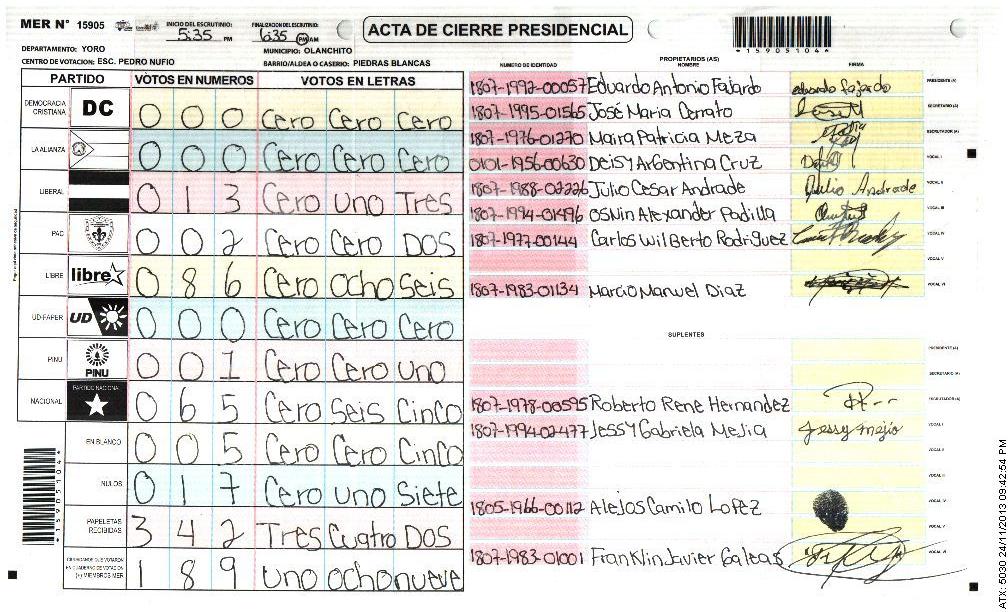 MER N° 15905
INICIO DEL ESCRUTINIO: 5:35 PM
FINALIZACION DEL ESCRUTINIO: 6:35 PM AM
ACTA DE CIERRE PRESIDENCIAL
*15905104*
DEPARTAMENTO: YORO
MUNICIPIO: OLANCHITO
CENTRO DE VOTACION: ESC. PEDRO NUFIO
BARRIO/ALDEA O CASERIO: PIEDRAS BLANCAS
PARTIDO VOTOS EN NUMEROS VOTOS EN LETRAS
DEMOCRACIA CRISTIANA DC 0 0 0 Cero Cero Cero
LA ALIANZA 0 0 0 Cero Cero Cero
LIBERAL 0 1 3 Cero uno Tres
PAC 0 0 2 Cero Cero DOS
LIBRE libre 0 8 6 Cero ocho Seis
UD-FAPER UD 0 0 0 Cero Cero Cero
PINU PINU 0 0 1 Cero Cero uno
NACIONAL PARTIDO NACIONAL 0 6 5 Cero Seis Cinco
EN BLANCO 0 0 5 Cero Cero Cinco
NULOS 0 1 7 Cero uno Siete
PAPELETAS RECIBIDAS 3 4 2 Tres Cuatro DOS
CIUDADANOS QUE VOTARON EN CUADERNO DE VOTACION (+) MIEMBROS MER 1 8 9 uno ocho nueve
*15905104*
PROPIETARIOS (AS)
NUMERO DE IDENTIDAD NOMBRE FIRMA
1807-1992-00057 Eduardo Antonio Fajardo eduardo fajardo PRESIDENTE (A)
1807-1995-01565 José Maria Cerrato SECRETARIO (A)
1807-1976-01270 Maira Patricia Meza ESCRUTADOR (A)
0101-1956-00630 Deisy Argentina Cruz VOCAL I
1807-1988-02226 Julio Cesar Andrade Julio Andrade VOCAL II
1807-1994-01496 Osnin Alexander Padilla VOCAL III
1807-1977-00144 Carlos Wilberto Rodriguez VOCAL IV
VOCAL V
1807-1983-01134 Marcio Manuel Diaz VOCAL VI
SUPLENTES
PRESIDENTE (A)
SECRETARIO (A)
1807-1978-00595 Roberto Rene Hernandez ESCRUTADOR (A)
1807-1994-02477 Jessy Gabriela Mejia Jessy mejia VOCAL I
VOCAL II
VOCAL III
1805-1966-00112 Alejos Camilo Lopez VOCAL IV
VOCAL V
1807-1983-01001 Franklin Javier Galeas VOCAL VI
ATX: 5030 24/11/2013 09:42:54 PM